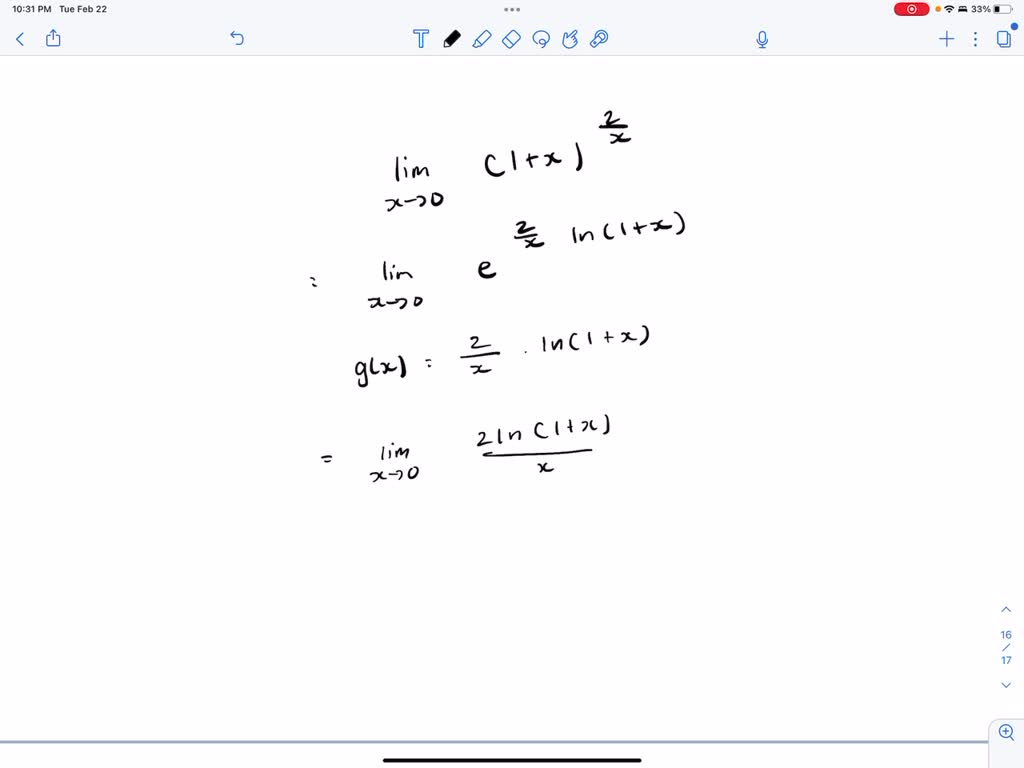 10:31 PM Tue Feb 22
33%
T
lim x→0 (1+x)^(2/x)
: lim x→0 e^(2/x ln(1+x))
g(x) = 2/x . ln(1+x)
= lim x→0 2ln(1+x)/x
16
/
17